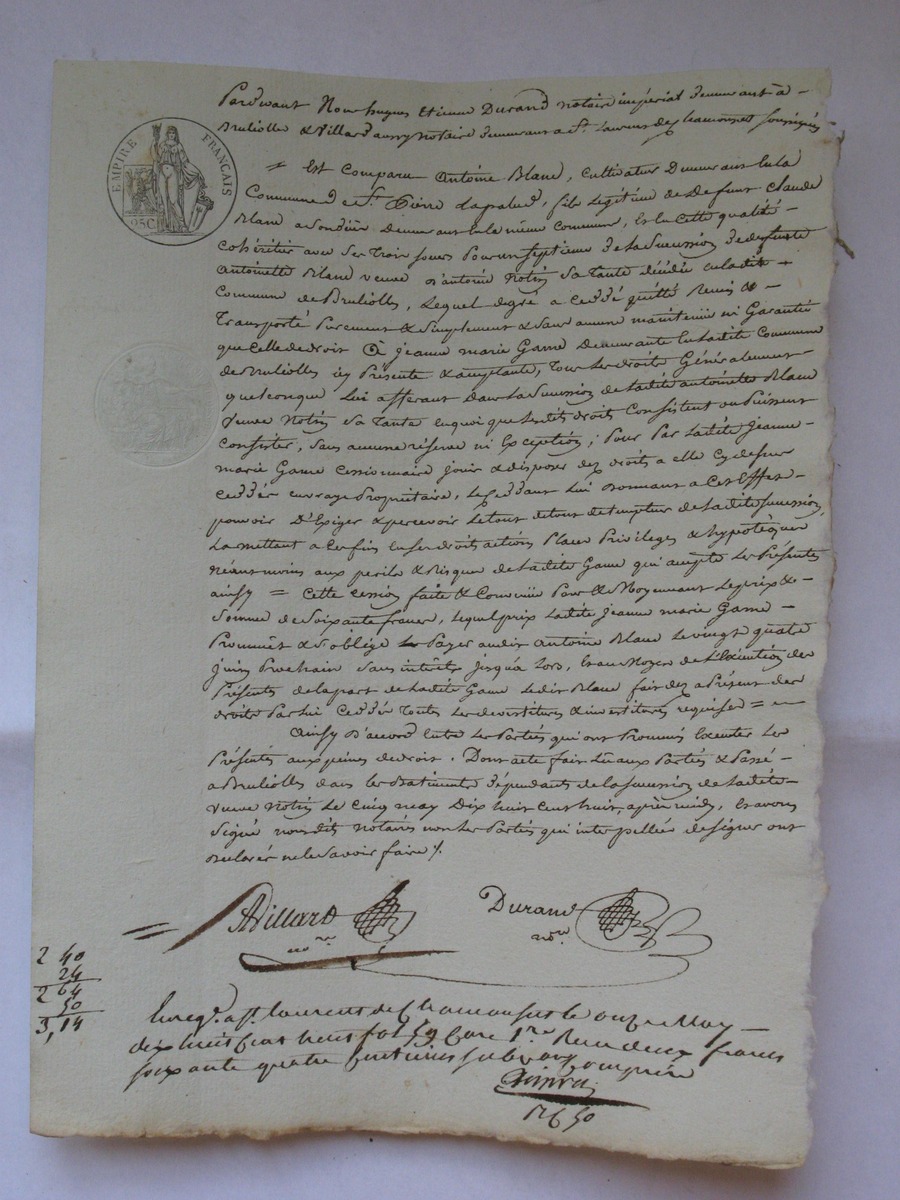 EMPIRE FRANÇAIS
25C
Pardevant Nous hugues Etienne Durand notaire impérial demeurant à
Brulliolles & Villard aussy notaire demeurant a St. Laurens de Chamousset soussignés
= Est Comparu Antoine Blanc, cultivateur Demeurant En la
Commune de St. Pierre Lapalud, fils Légitime de Defunt Claude
Blanc Demeurant En la même Commune, Et En Cette qualité
cohéritier avec Ses Trois sœurs Pour un Septieme de La Succession de defunte
Antoinette Blanc veuve d'antoine Notin Sa Tante décédée En ladite
Commune de Brulliolles, Lequel de gré a Ceddé quitté Remis &
Transporté Purement & Simplement & Sans aucune maintenüe ni Garantie
que Celle de droit à jeanne marie Game Demeurante En Ladite Commune
de Brulliolles icy Présente & acceptante, Tous Les droits Généralement
quelconque Lui afferant Dans La Succession de Ladite antoinette Blanc
veuve Notin Sa Tante En quoi que Lesdits droits Consistent ou Puissent
Consister, Sans aucune réserve ni Exception; Pour Par Ladite Jeanne
marie Game Cessionnaire jouir & disposer des droits a elle Cy dessus
Ceddés en vraye Propriétaire, Le Ceddant Lui Donnant a Cet Effet
pouvoir D'Exiger & percevoir Le tout detout detempteur de Ladite Succession
La mettant a Ces fins En Ses droits actions Places Privileges & hypotèques
Néant moins aux perils & Risques de Ladite Game qui accepte Les Présentes
ainsy = Cette Cession faite & Convenüe Pour & Moyennant Le prix &
Somme de Soixante francs, Lequel prix Ladite jeanne marie Game
Promêt & S'oblige Payer audit Antoine Blanc Le vingt quatre
juin Prochain Sans intérêts jusqu'à Lors, Et au Moyen de L'Exécution des
Présentes de la part de Ladite Game Ledit Blanc fait dez a Présent des
droits Par Lui Ceddés Toutes Les devestitures & investitures requises =
Ainsy D'accord Entre Les Parties qui ont Promis Executer Les
Présentes aux peines de droit. Dont acte fait Lu aux Parties & Passé
a Brulliolles dans Les Batiments dépendants de la Succession de Ladite
veuve Notin Le Cinq may Dix huit Cent huit, après midi, Et avons
Signé nousdits notaires non Les Parties qui interpellées de Signer ont
declaré ne le Savoir faire /.
Villard
nore
Durand
nore
2 40
24
2 64
50
3,14
Enreg. a St. laurent de Chamousset le onze May
dix huit Cent huit fol 59 Case 1re Reçu deux francs
soixante quatre Centimes subvon Comprise